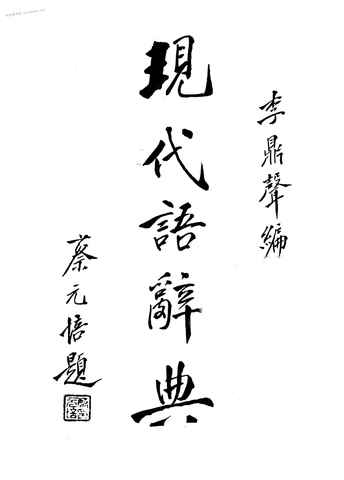 李鼎聲編
現代語辭典
蔡元培題